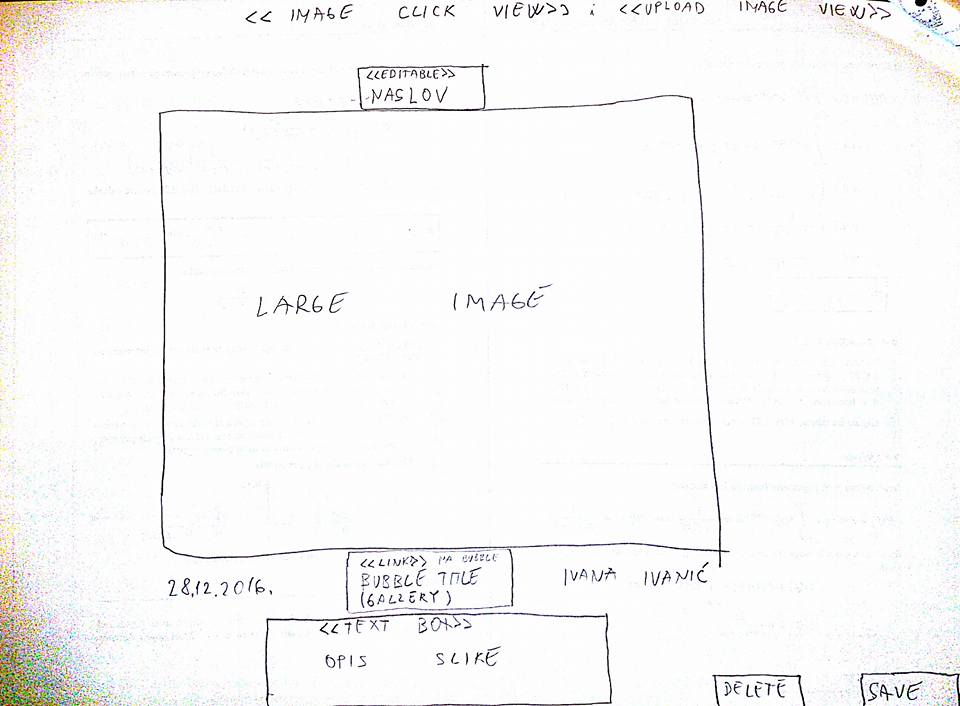 << IMAGE CLICK VIEW>> i <<UPLOAD IMAGE VIEW>>
<<EDITABLE>>
NASLOV
LARGE IMAGE
<<LINK>> NA BUBBLE
BUBBLE TITLE
(GALLERY)
28.12.2016.
IVANA IVANIĆ
<<TEXT BOX>>
OPIS SLIKE
DELETE
SAVE